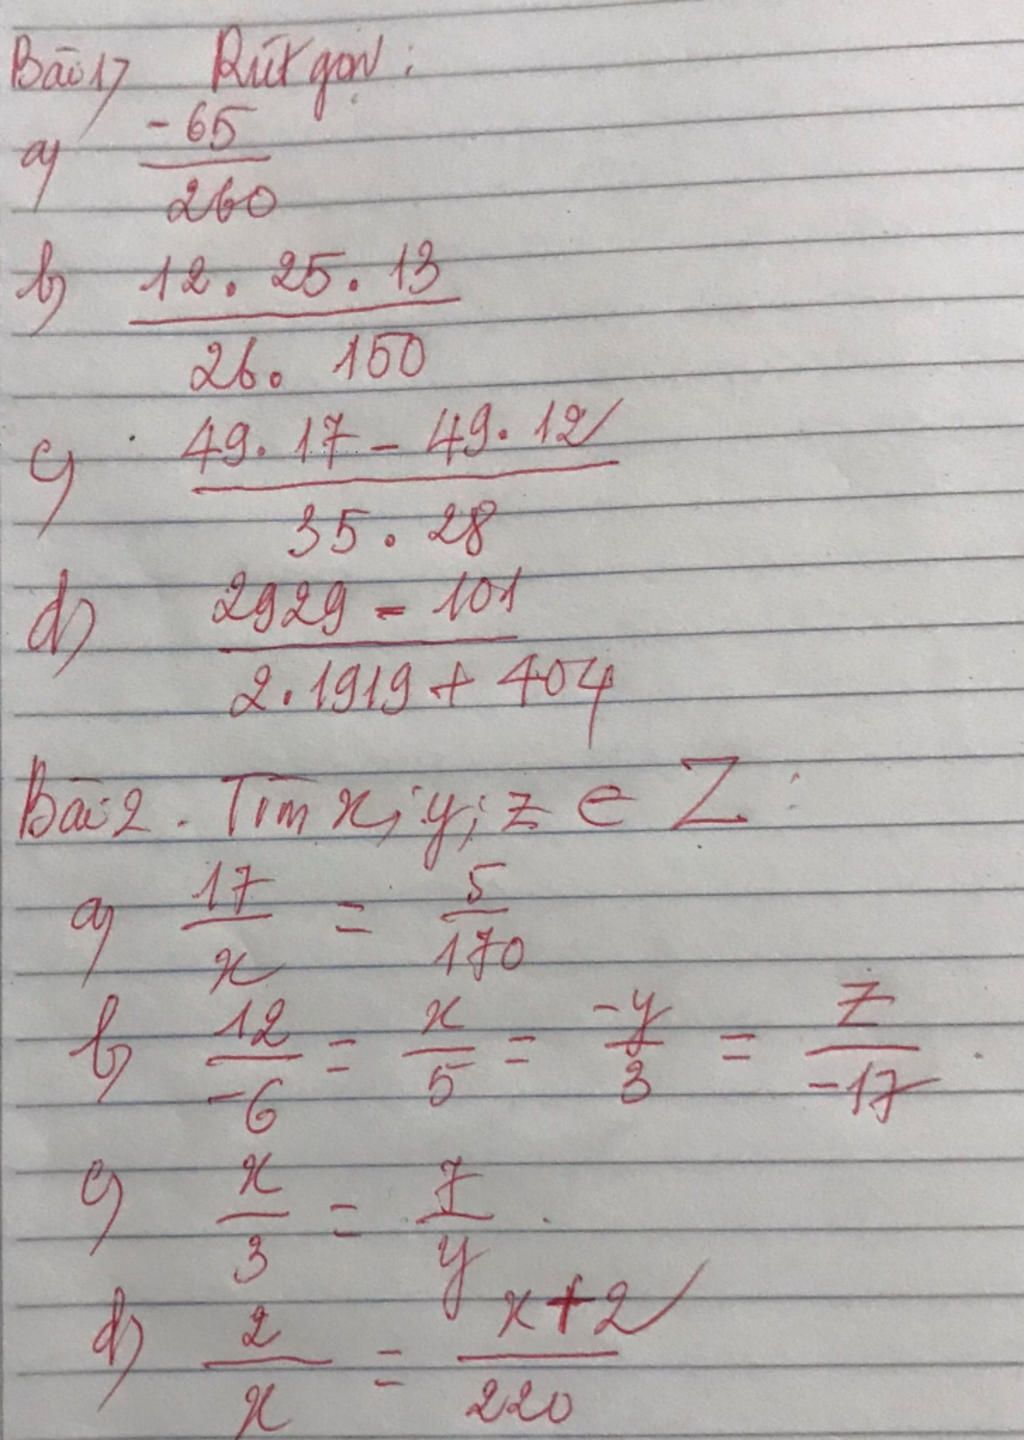 Bài 1) Rút gọn:
a) -65/260
b) 12. 25. 13/26. 150
c) 49. 17 - 49. 12/35. 28
d) 2929 - 101/2.1919 + 404
Bài 2. Tìm x; y; z ∈ Z:
a) 17/x = 5/170
b) 12/-6 = x/5 = -y/3 = z/-17.
c) x/3 = 7/y.
d) 2/x = x+2/220